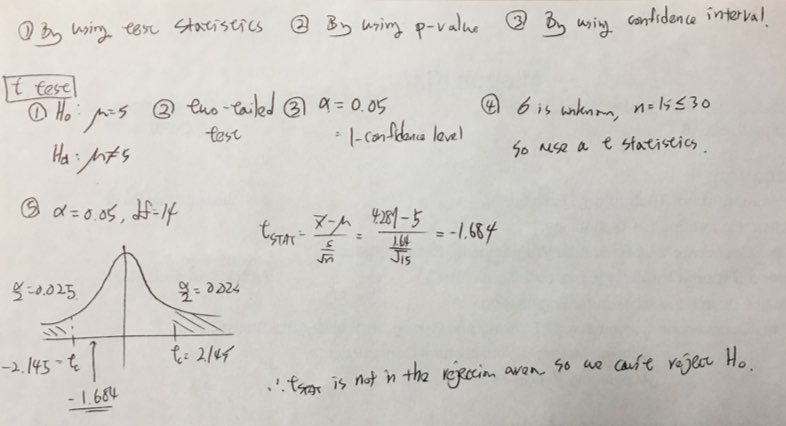 ① By using test statistics ② By using p-value ③ By using confidence interval.
t test
① H₀: μ=5 ② two-tailed test ③ α=0.05 = 1-confidence level ④ σ is unknown, n=15≤30 so use a t statistics.
Hₐ: μ≠5
⑤ α=0.05, df=14
t_STAT = (x̄-μ)/(s/√n) = (4.287-5)/(1.64/√15) = -1.684
α/2=0.025 α/2=0.025
-2.145=t_c t_c=2.145
-1.684
∴ t_STAT is not in the rejection area so we can't reject H₀.